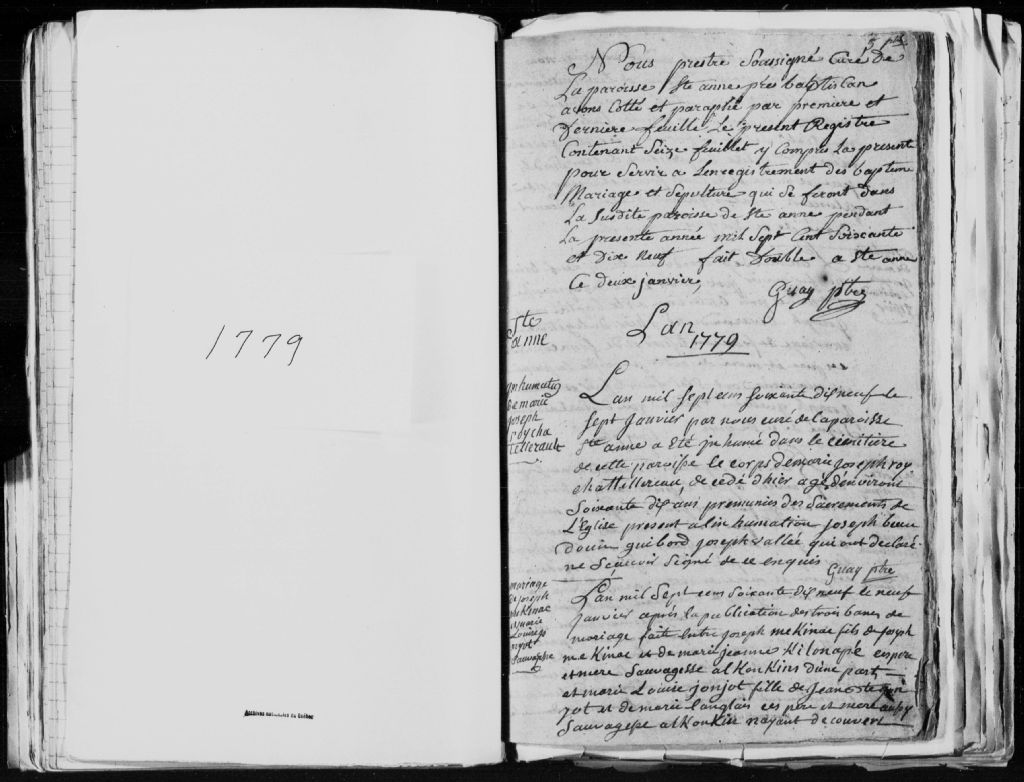 1779
Archives nationales du Québec
Nous prestre Soussigné Curé de
La paroisse Ste anne près baptiscan
avons Cotté et paraphé par premiere et
Derniere feuille Le present Registre
Contenant Seize feuillet y Compris La presente
pour Servir a Lenregistrement des bapteme
Mariage et Sepulture qui Se feront dans
La Susdite paroisse de Ste anne pendant
La presente année mil Sept Cent Soixante
et Dix Neuf fait Double a Ste anne
Ce deux janvier
Guay ptre
Ste
anne
Lan
1779
inhumation
de marie
joseph
roy cha
tellerault
Lan mil sept cens soixante dis neuf le
sept janvier par nous curé de la paroisse
Ste anne a été inhumé dans le cimitiere
de cette paroisse le corps de marie joseph roy
chattellereau, decédé d'hier agé d'environt
soixante dis ans premunies des Sacrements de
L'Eglise present a lin humation joseph beau
douin guibord joseph vallée qui ont declaré
ne Scavoir Signé de ce enquis
Guay ptre
mariage
de joseph
mc Kinac
et marie
Louise jo
njot
Sauvagesse
Lan mil Sept cens soixante dis neuf le neuf
janvier après la publication des trois bans de
mariage faite entre joseph mc Kinac fils de joseph
mc Kinac et de marie jeanne Kilonapé ces pere
et mere Sauvagesse al Kon Kins d'une part,
et marie Louise jonjot fille de Jean jon
jot et de marie langlais ces pere et mere aussy
Sauvagesse al Kon Kin n'ayant decouvert